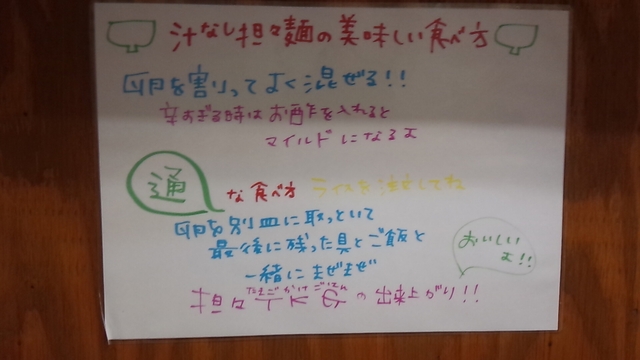 汁なし担々麺の美味しい食べ方
卵を割ってよく混ぜる!!
辛すぎる時はお酢を入れると
マイルドになるよ
通
な食べ方 ライスを注文してね
卵を別皿に取っといて
最後に残った具とご飯と
一緒にまぜまぜ
たまごかけごはん
担々TKGの出来上がり!!
おいしい
よ!!